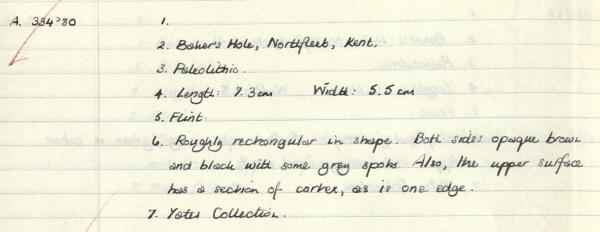 A. 334'80 1.
2. Baker's Hole, Northfleet, Kent.
3. Paleolithic.
4. Length: 7.3cm Width: 5.5cm
5. Flint.
6. Roughly rectangular in shape. Both sides opaque brown
and black with some grey spots. Also, the upper surface
has a section of cortex, as is one edge.
7. Yates Collection.